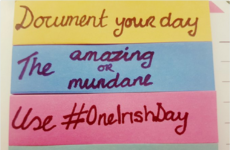 Document your day
The amazing
OR
mundane
Use #OneIrishDay